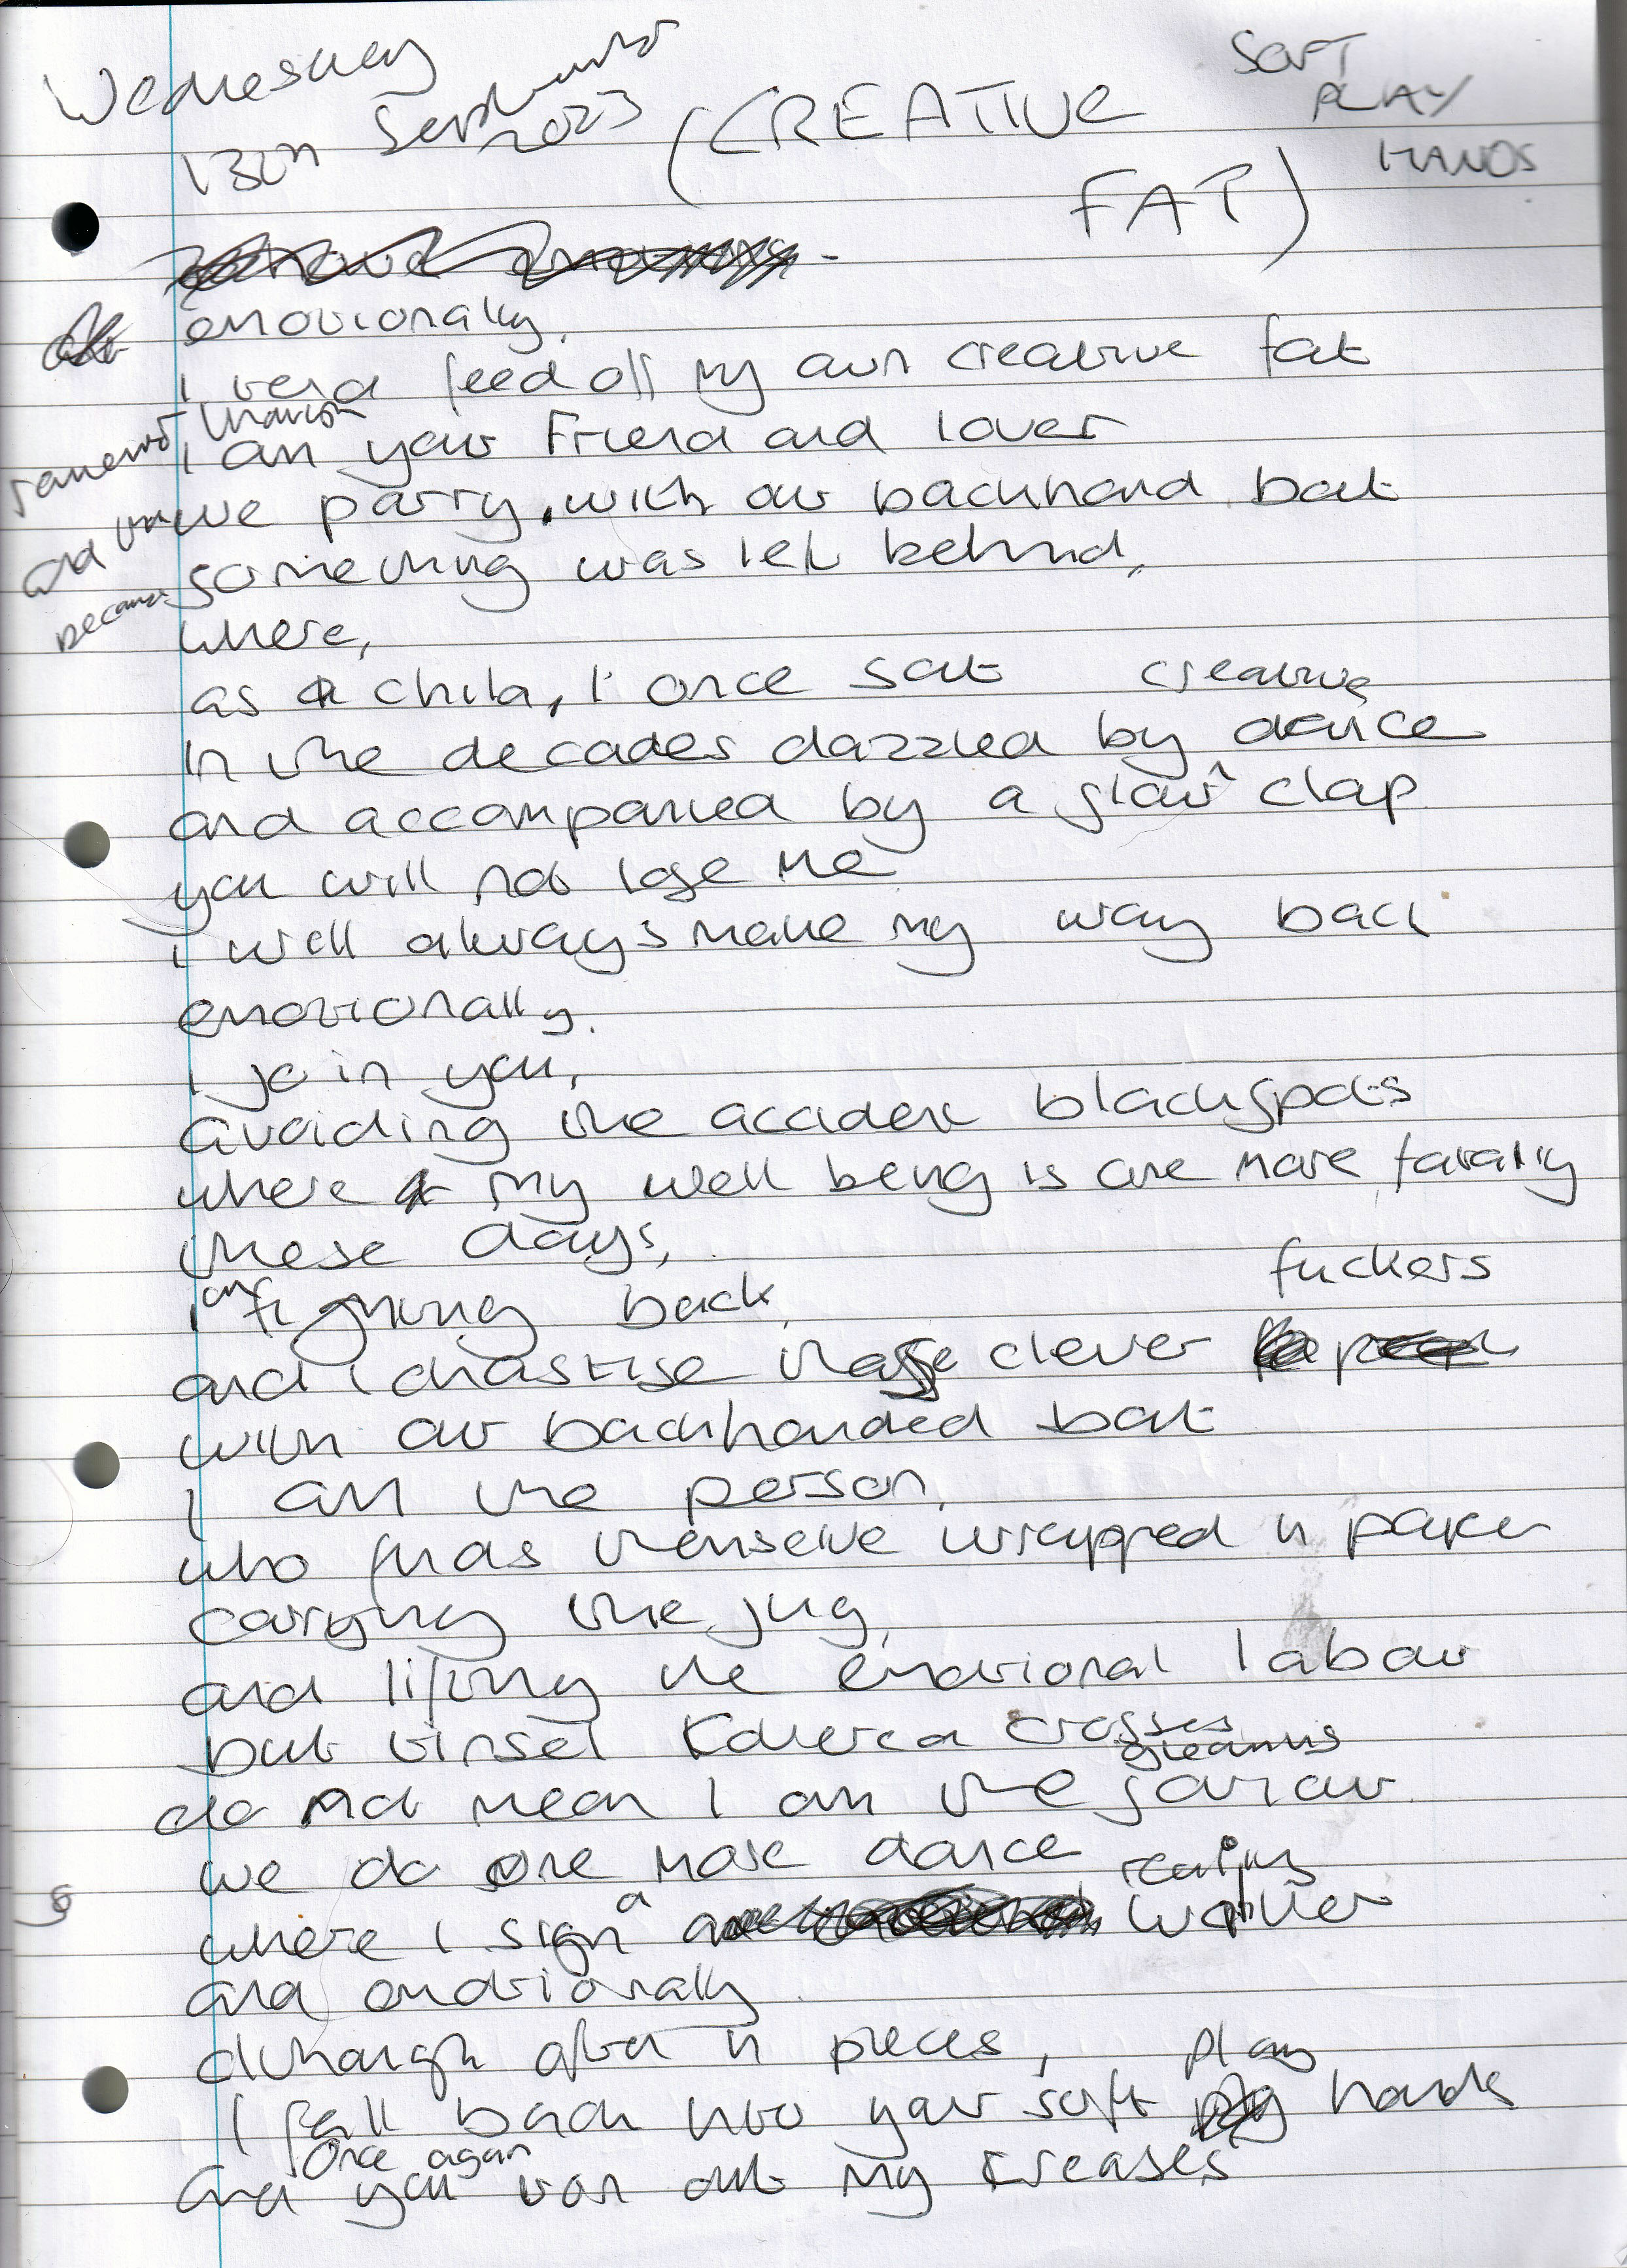 Wednesday
13th September
2023
(CREATIVE
FAT)
SOFT
PLAY
HANDS
emotionally,
I tend feed off my own creative fat
I am your Friend and lover
we parry, with our backhand bat
and
because something was left behind,
where,
as a child, I once sat
creative
in the decades dazzled by device
and accompanied by a slow clap
you will not lose me
I will always make my way back
emotionally.
I join you,
avoiding the accident blackspots
where my well being is one more fatality
these days,
I am fighting back,
fuckers
and I chastise those clever
with our backhanded bat
I am the person,
who finds themselve wrapped in paper
carrying the jug,
and lifting the emotional labour
but tinsel covered crosses
gleaming
do not mean I am the saviour.
we do one more dance
where I sign a waiver
and emotionally
although often in pieces,
play
I fall back into your soft hands
once again
and you iron out my creases